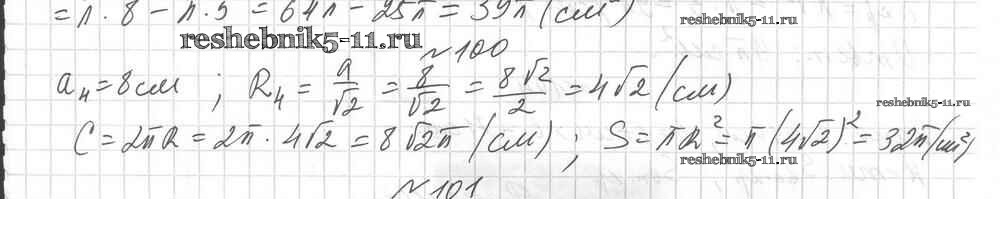 = π · 8² − π · 5² = 64π − 25π = 39π (см²)
reshebnik5-11.ru
reshebnik5-11.ru
№100
a₄ = 8 см ; R₄ = a/√2 = 8/√2 = 8√2/2 = 4√2 (см)
reshebnik5-11.ru
C = 2πR = 2π · 4√2 = 8√2π (см) ; S = πR² = π (4√2)² = 32π (см²)
reshebnik5-11.ru
№101